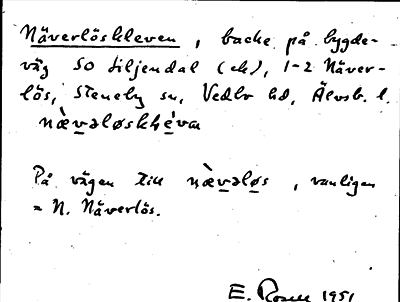 Näverlöskleven, backe på bygde-
väg SO Siljendal (ek), 1-2 Näver-
lös, Steneby sn, Vedbo hd, Älvsb. l.
nævəløskléva
På vägen till nævəløs, vanligen
= N. Näverlös.
E. Rosell 1951